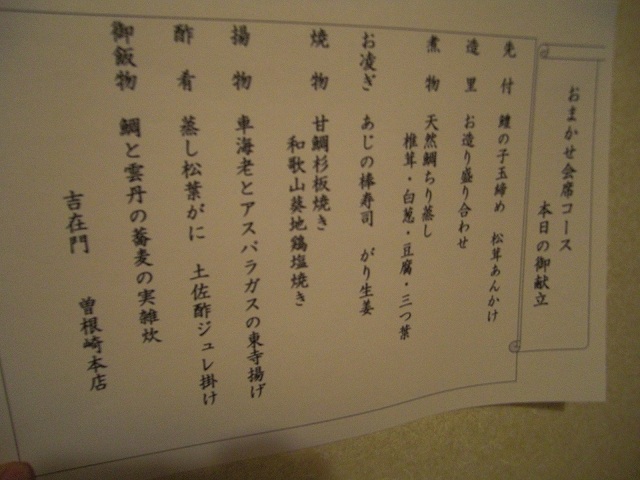 おまかせ会席コース
本日の御献立
先付 鱧の子玉締め 松茸あんかけ
造里 お造り盛り合わせ
煮物 天然鯛ちり蒸し
椎茸・白葱・豆腐・三つ葉
お凌ぎ あじの棒寿司 がり生姜
焼物 甘鯛杉板焼き
和歌山葵地鶏塩焼き
揚物 車海老とアスパラガスの東寺揚げ
酢肴 蒸し松葉がに 土佐酢ジュレ掛け
御飯物 鯛と雲丹の蕎麦の実雑炊
吉在門 曽根崎本店